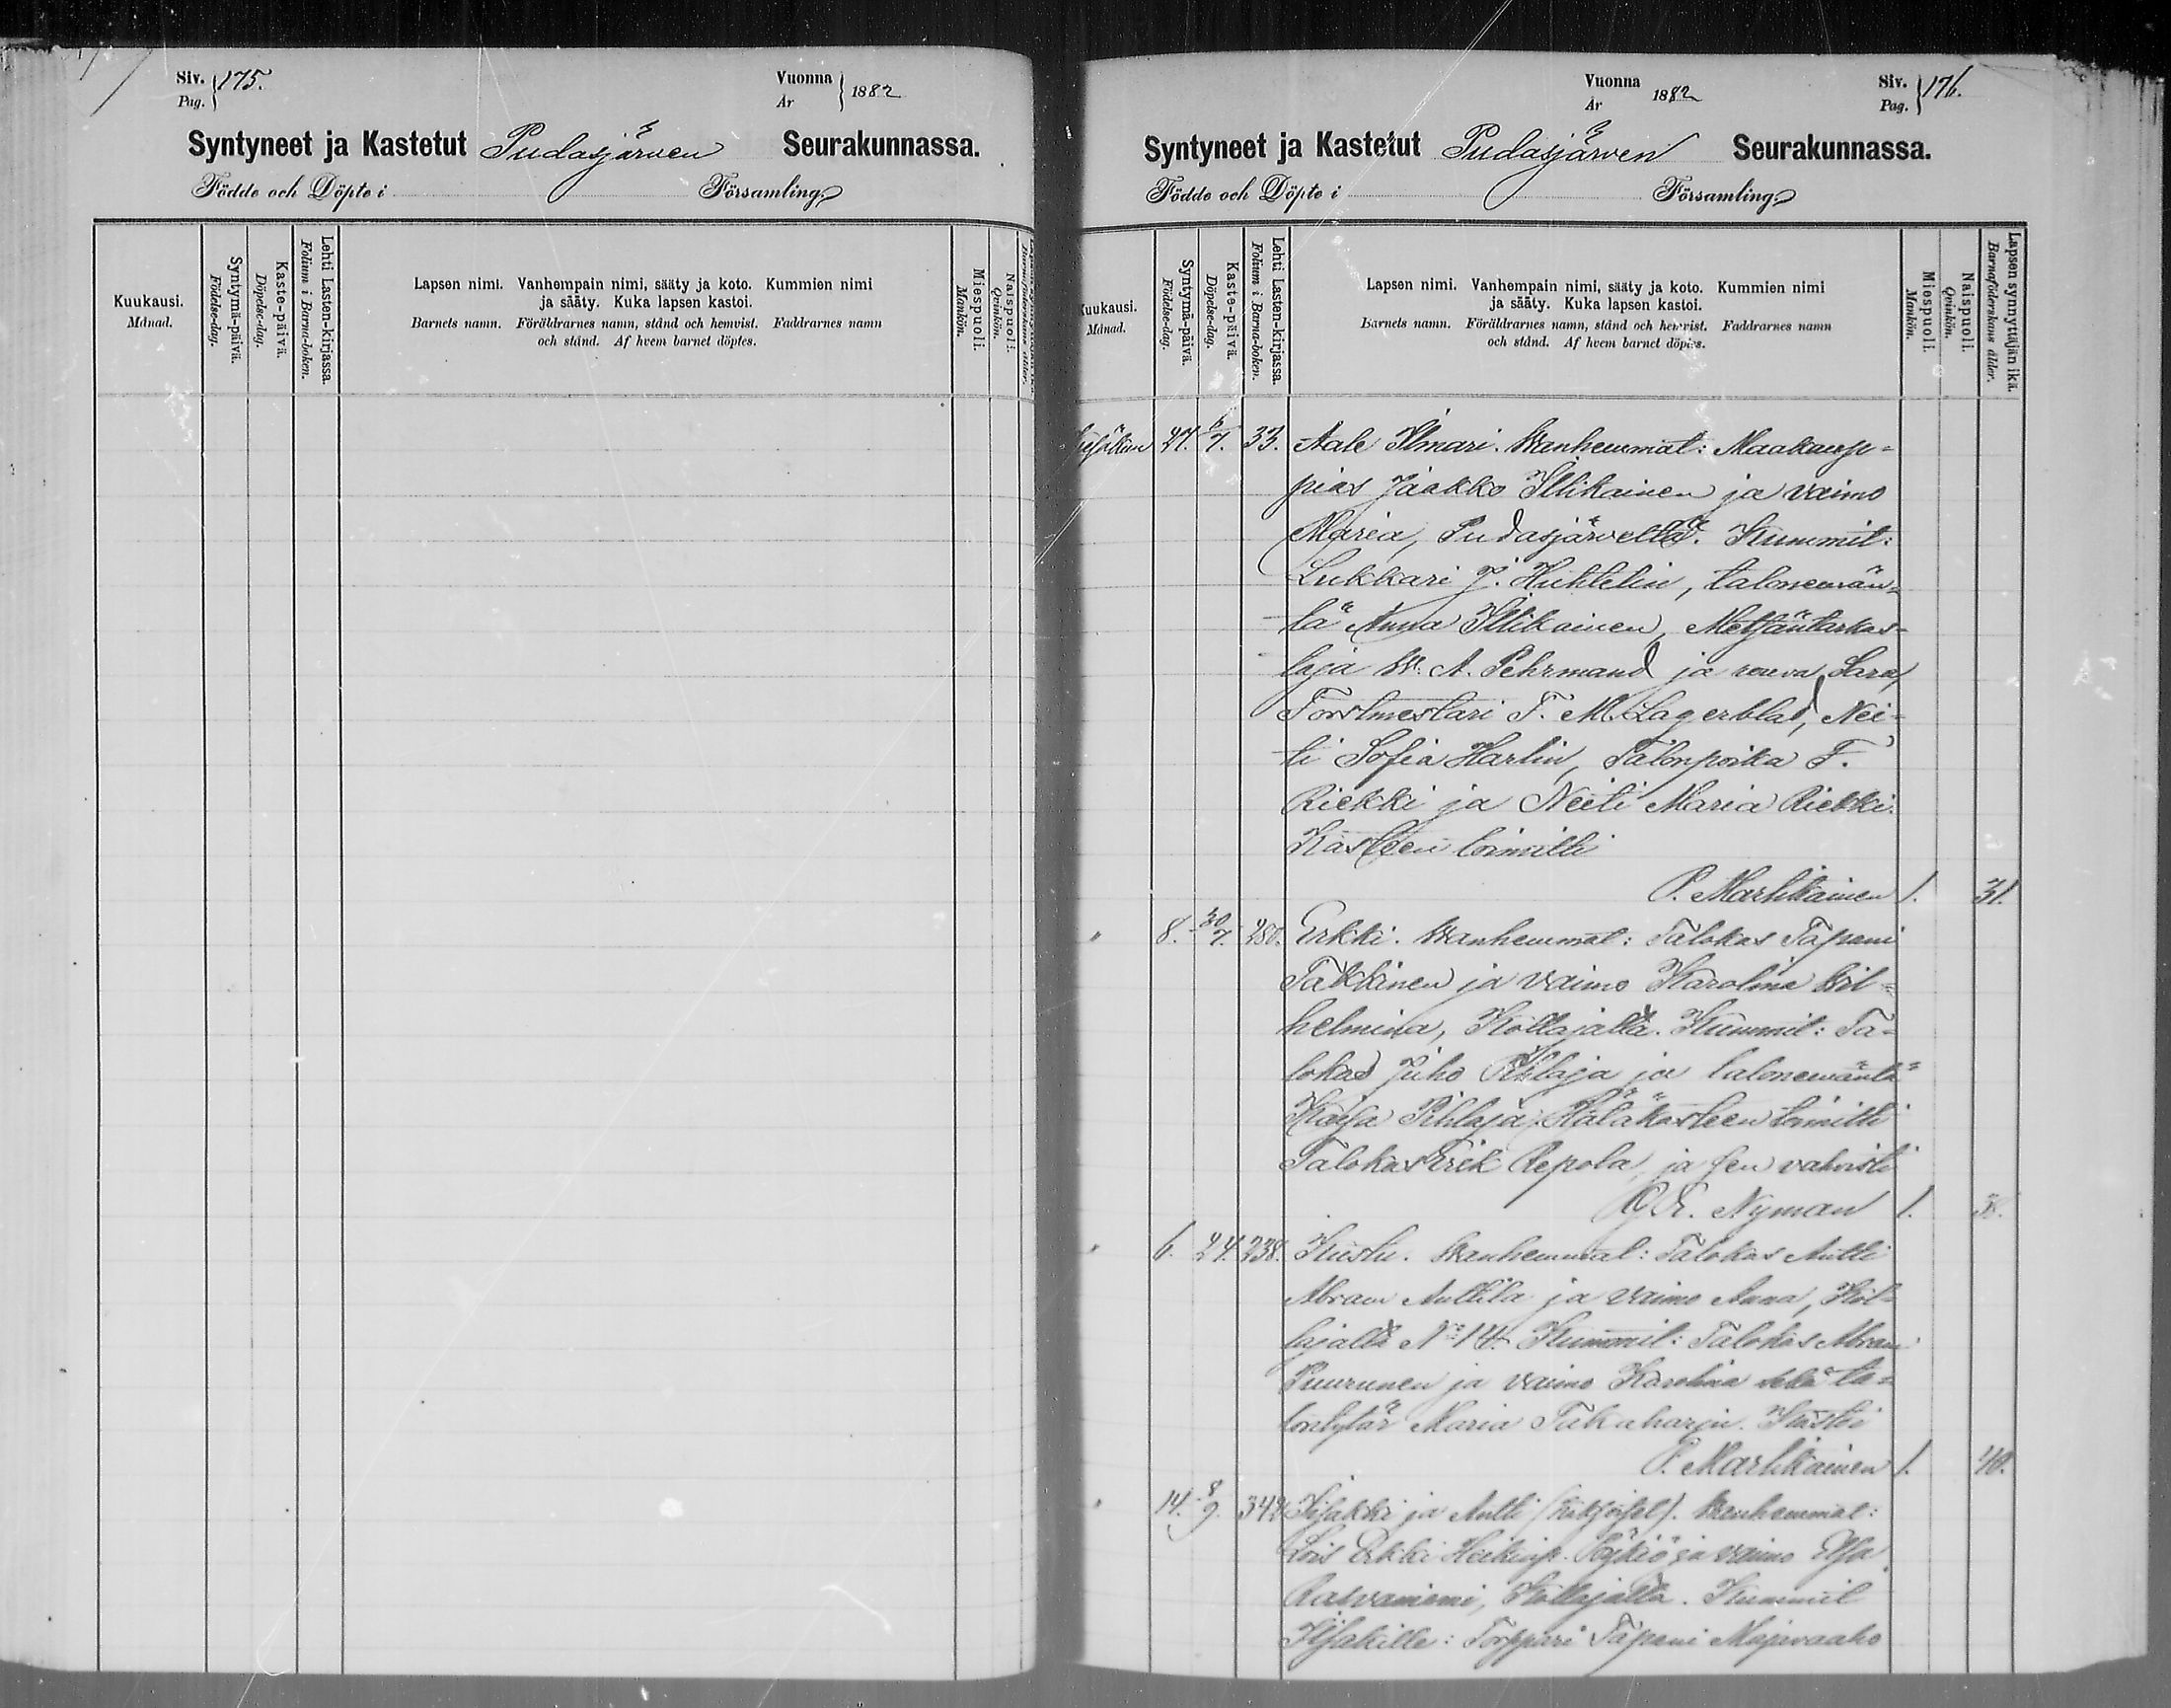 Siv. 175.
Pag.
Vuonna 1882
År
Syntyneet ja Kastetut Pudasjärven Seurakunnassa.
Födde och Döpte i Församling.
Kuukausi.
Månad.
Syntymä-päivä.
Födelse-dag.
Kaste-päivä.
Döpelse-dag.
Lehti Lasten-kirjassa.
Folium i Barna-boken.
Lapsen nimi. Vanhempain nimi, sääty ja koto. Kummien nimi
ja sääty. Kuka lapsen kastoi.
Barnets namn. Föräldrarnes namn, stånd och hemvist. Faddrarnes namn
och stånd. Af hvem barnet döptes.
Miespuoli.
Mankön.
Naispuoli.
Qvinkön.
Vuonna 1882
År
Siv. 176.
Pag.
Syntyneet ja Kastetut Pudasjärven Seurakunnassa.
Födde och Döpte i Församling.
Kuukausi.
Månad.
Syntymä-päivä.
Födelse-dag.
Kaste-päivä.
Döpelse-dag.
Lehti Lasten-kirjassa.
Folium i Barna-boken.
Lapsen nimi. Vanhempain nimi, sääty ja koto. Kummien nimi
ja sääty. Kuka lapsen kastoi.
Barnets namn. Föräldrarnes namn, stånd och hemvist. Faddrarnes namn
och stånd. Af hvem barnet döptes.
Miespuoli.
Mankön.
Naispuoli.
Qvinkön.
Lapsen synnyttäjän ikä.
Barnaföderskans ålder.
27. 6/7. 33. Aale Ilmari. Wanhemmat: Maakaup-
pias Jaakko Illikainen ja vaimo
Maria, Pudasjärveltä. Kummit:
Lukkari J. Huhtelin, talonemän-
tä Anna Illikainen, Metsäntarkas-
taja W. A. Pehrmand ja rouva Sara,
Forstmestari F. M. Lagerblad, Nei-
ti Sofia Harlin, Talonpoika F.
Riekki ja Neiti Maria Riekki.
Kasteen toimitti
P. Marhikainen 1. 31.
" 8. 30/7. 280. Erkki. Wanhemmat: Talokas Tapani
Takkinen ja vaimo Karolina Wil-
helmina, Kollajalta. Kummit: Ta-
lokas Juho Pihlaja ja talonemäntä
Kaisa Pihlaja. Hätäkasteen toimitti
Talokas Erik Repola, ja sen vahvisti
Nyman 1.
" 6. 24. 238. Kustu. Wanhemmat: Talokas Antti
Abram Anttila ja vaimo Anna, Kol-
lajalta No 14. Kummit: Talokas Abram
Puurunen ja vaimo Karolina sekä ta-
lontytär Maria Takaharju. Kastoi
P. Marhikainen 1. 40.
" 14. 8/9. 342 Iisakki ja Antti (kaksoiset). Wanhemmat:
Lois Erkki Heikinp. ja vaimo Elsa
Rasvaniemi, Kollajalta. Kummit
Iisakille: Torppari Tapani Majavaaho